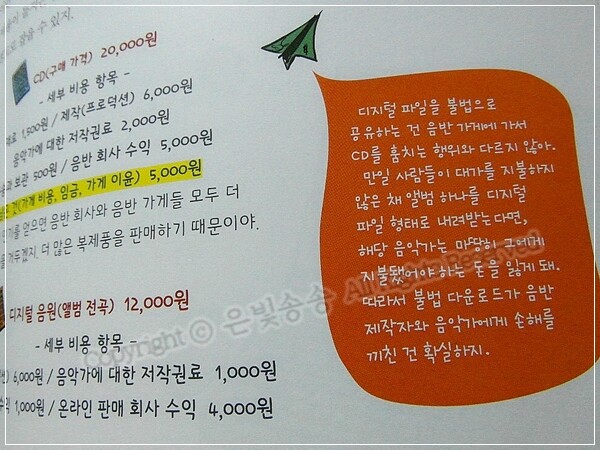 쓸 수 있지.
CD(구매 가격) 20,000원
- 세부 비용 항목 -
1,500원 / 제작(프로덕션) 6,000원
음악가에 대한 저작권료 2,000원
보관 500원 / 음반 회사 수익 5,000원
것(가게 비용, 임금, 가게 이윤) 5,000원
얻으면 음반 회사와 음반 가게들 모두 더
거두겠지. 더 많은 복제품을 판매하기 때문이야.
디지털 음원(앨범 전곡) 12,000원
- 세부 비용 항목 -
6,000원 / 음악가에 대한 저작권료 1,000원
1,000원 / 온라인 판매 회사 수익 4,000원
디지털 파일을 불법으로
공유하는 건 음반 가게에 가서
CD를 훔치는 행위와 다르지 않아.
만일 사람들이 대가를 지불하지
않은 채 앨범 하나를 디지털
파일 형태로 내려받는다면,
해당 음악가는 마땅히 그에게
지불됐어야 하는 돈을 잃게 돼.
따라서 불법 다운로드가 음반
제작자와 음악가에게 손해를
끼친 건 확실하지.
Copyright © 은빛송송 All Rights Reserved